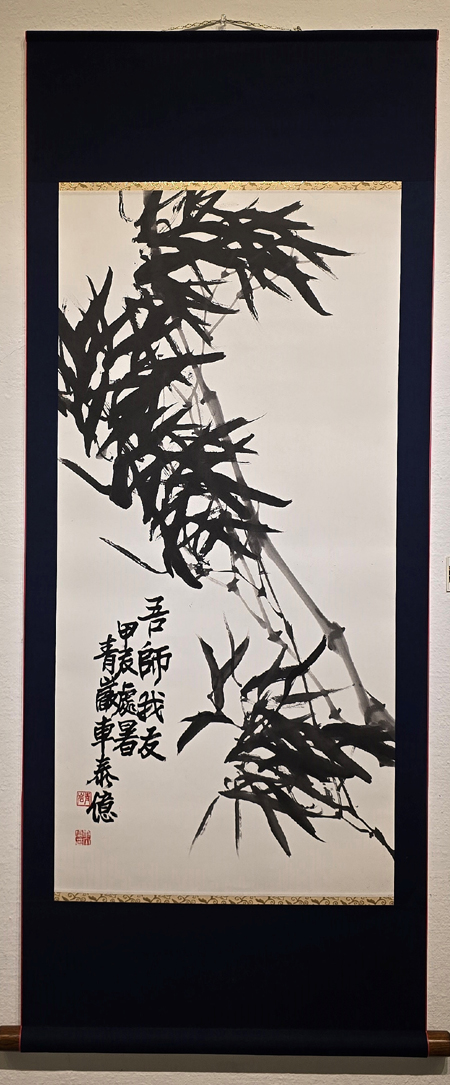 吾師我友
甲辰處暑
青巖車泰億